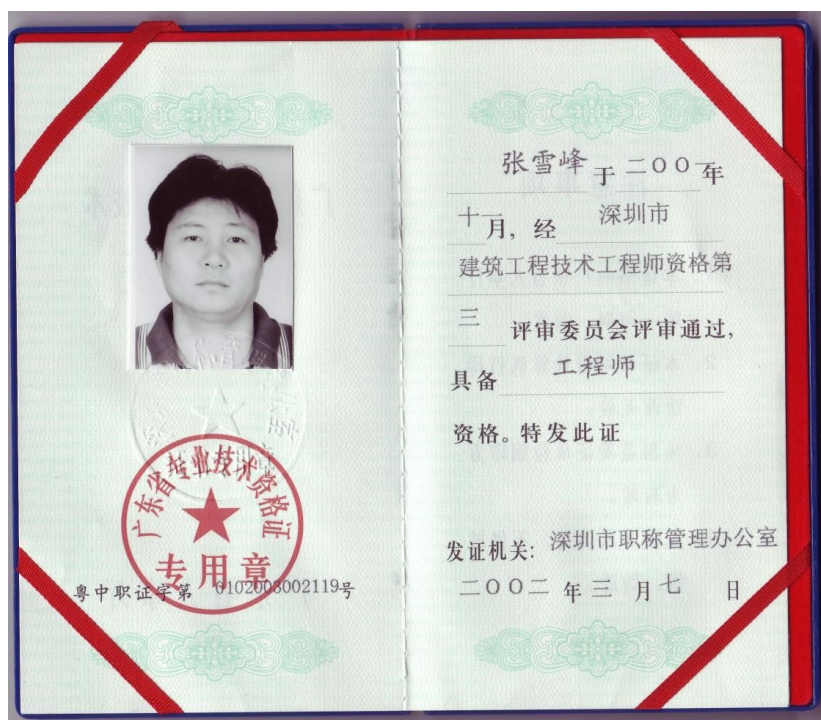 广东省专业技术资格证
专用章
粤中职证字第 0102003002119号
张雪峰 于 二〇〇一年
十一月, 经 深圳市
建筑工程技术工程师资格第
三 评审委员会评审通过,
具备 工程师
资格。特发此证
发证机关: 深圳市职称管理办公室
二〇〇二 年 三 月 七 日